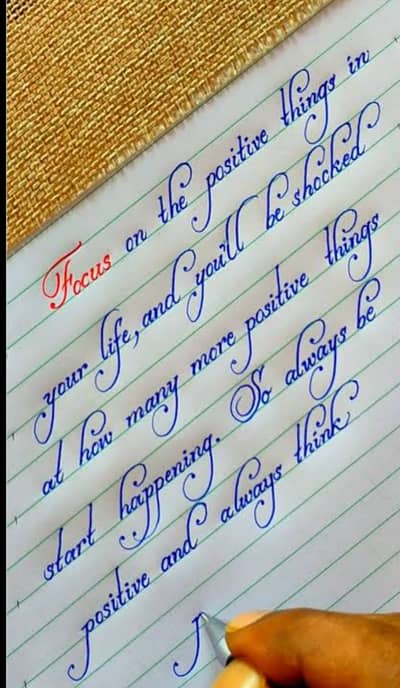 Focus on the positive things in
your life, and you'll be shocked
at how many more positive things
start happening. So always be
positive and always think
p